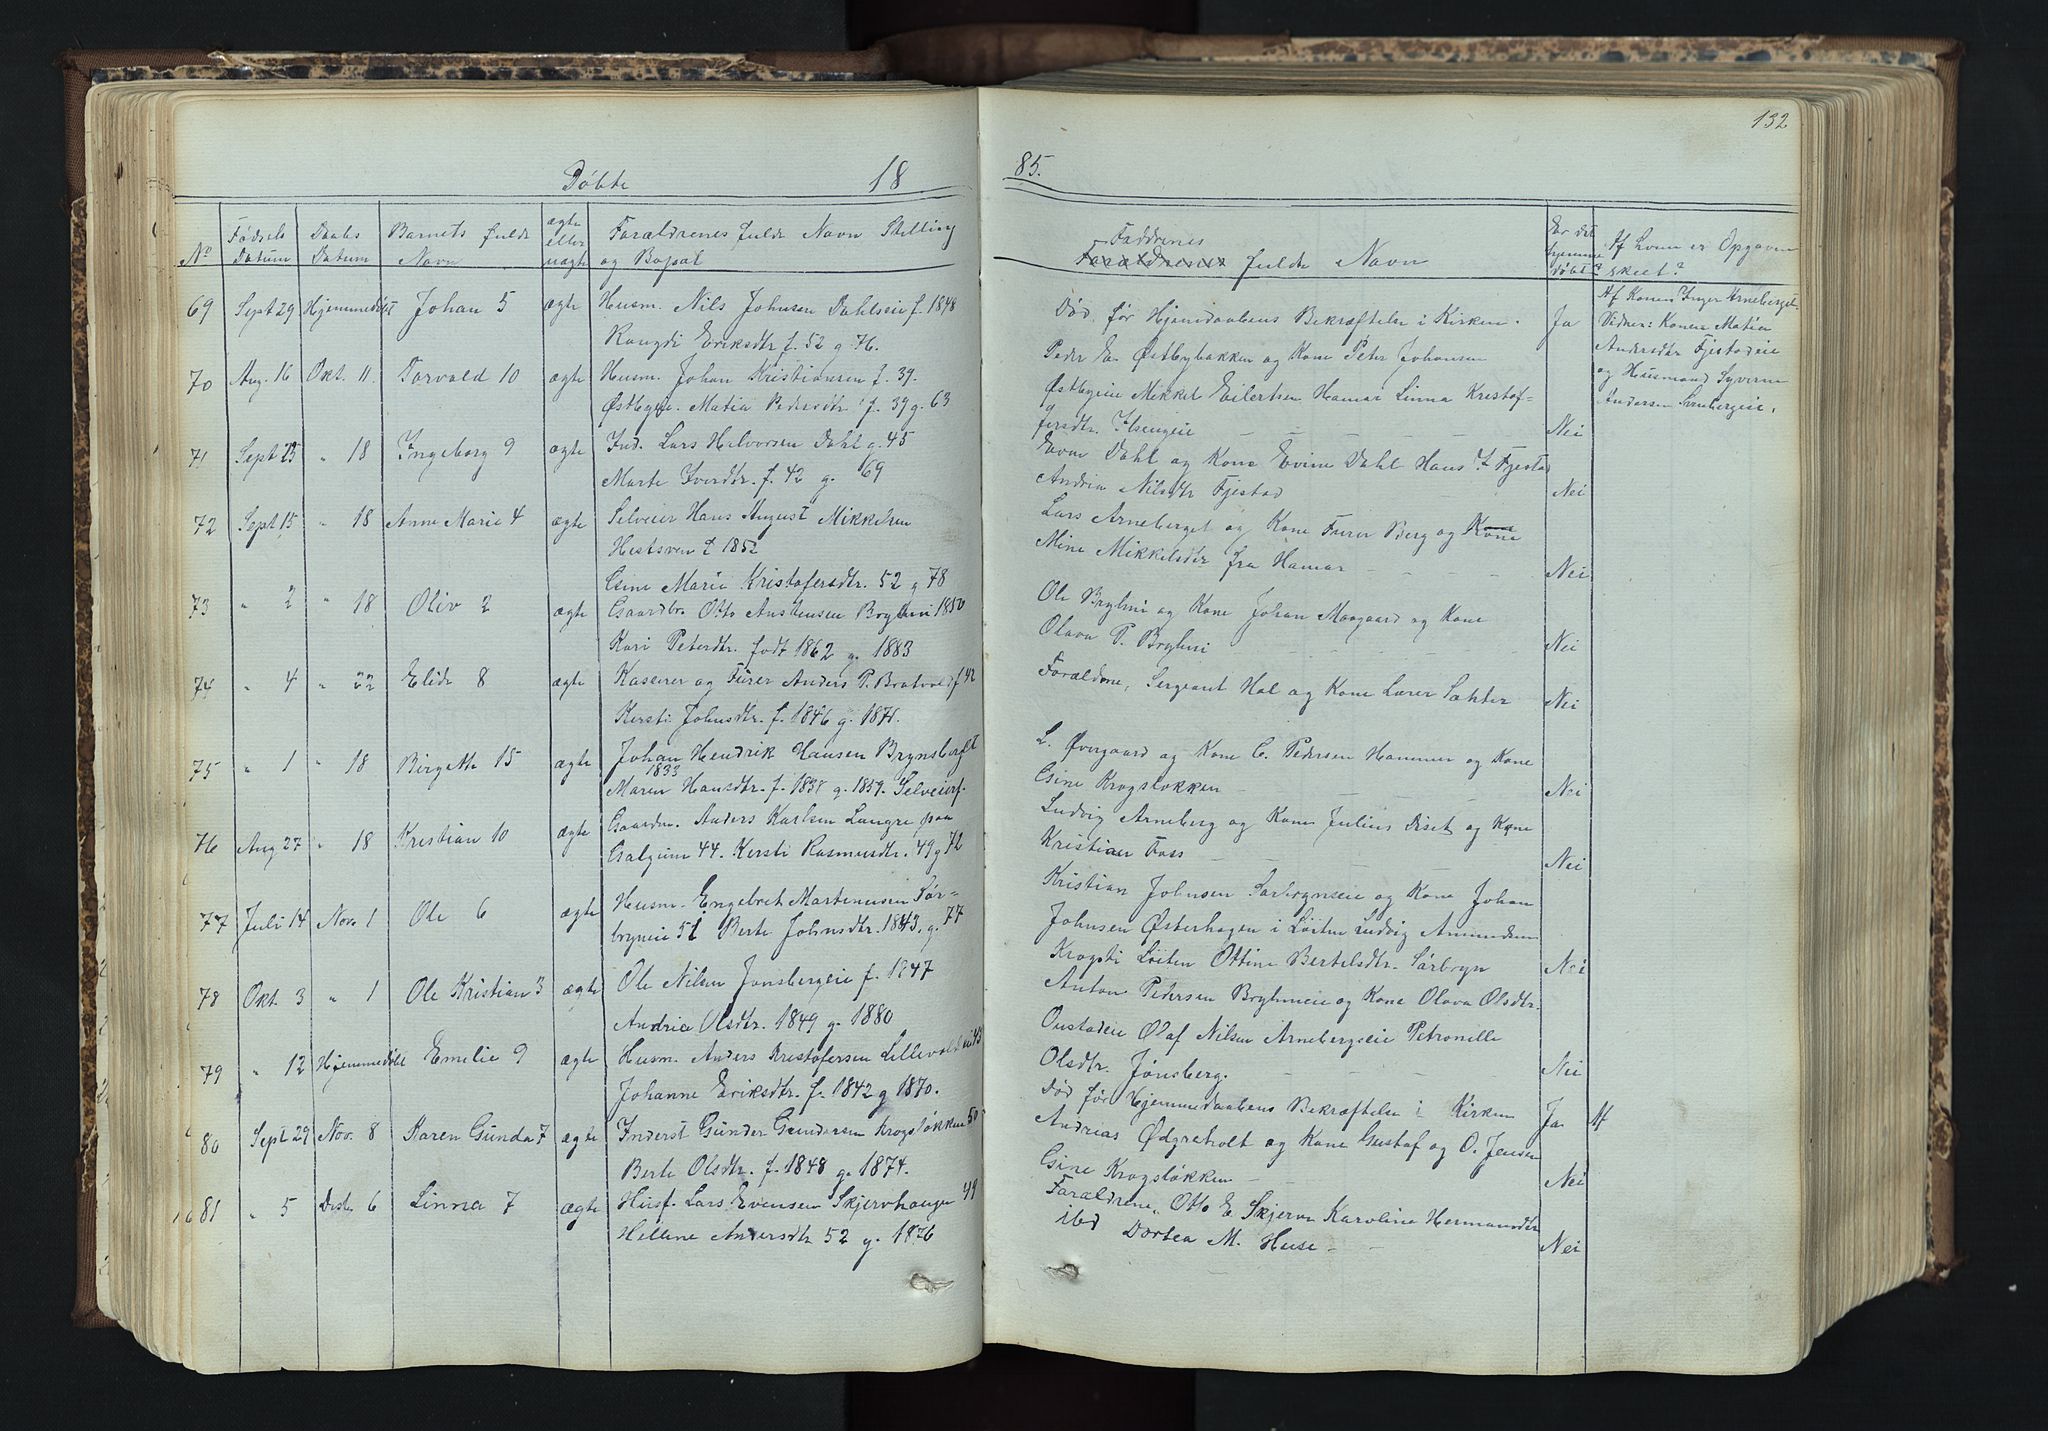 132
Döbte 18
85.
No Fødsels Datum Daabs Datum Barnets fulde Navn ægte eller uægte Forældrenes fulde Navn Stilling og Bopæl
Faddrenes
Forældrenes fulde Navn
Er det hjemme døbt?
Af hvem er Opgaven skeet?
69 Sept 29 Hjemmedøbt Johan 5 ægte Husm. Nils Johnsen Dahlseie f. 1848
Rangdi Eriksdtr f. 52 g. 76.
70 Aug. 16 Okt. 11. Torvald 10 ægte Husm. Johan Kristiansen f. 39.
Østbyeie. Matia Pedersdtr f. 39 g. 63
71 Sept 23 " 18 Ingeborg 9 ægte Ind. Lars Halvorsen Dahl g. 45
Marte Iverdtr. f. 42 g. 69
72 Sept 15 " 18 Anne Marie 4 ægte Selveier Hans August Mikkelsen
Hestsven f 1852
Gine Marie Kristofersdtr. 52 g 78
73 " 2 " 18 Oliv 2 ægte Gaardbr. Otto Brylini 1850
Kari Petersdtr. født 1862 g. 1883
74 " 4 " 22 Elide 8 ægte Kaserer og Furer Anders P. Bratvold f 42
Kersti Johnsdtr. f. 1846 g. 1871.
75 " 1 " 18 Birgette 15 ægte Johan Hendrik Hansen Brynsberg
1833
Maren Hansdtr. f. 1838 g. 1859. Selveierf.
76 Aug 27 " 18 Kristian 10 ægte Gaardm. Anders Karlsen Langre paa
Galgum 44. Kersti Rasmusdtr. 49 g 72
77 Juli 14 Nov. 1 Ole 6 ægte Husm. Engebret Martinusen Sør=
bryneie 51 Berte Johnsdtr. 1843. g. 77
78 Okt. 3 " 1 Ole Kristian 3 ægte Ole Nilsen Jønsbergeie f. 1847
Andria Olsdtr. 1849 g. 1880
79 " 12 Hjemmedøbt Emelie 9 ægte Husm. Anders Kristofersen Lillevold 43
Johanne Eriksdtr f. 1842 g 1870.
80 Sept 29 Nov. 8 Karen Gunda 7 ægte Inderst Gunder Gundersen Krogsløkken 50
Berte Olsdtr. f. 1848 g. 1874.
81 " 5 Desb. 6 Linna 7 ægte Husf. Lars Evensen Skjervhaugen 49
Hellene Andersdtr 52 g. 1876
Død før Hjemdaabens Bekræftelse i Kirken. Ja
Peder En Østbybakken og Kone Peter Johansen
Østbyeie Mikkel Eilertsen Hamar Linna Kristof=
fersdtr. Ilsengeie Nei
Even Dahl og Kone Evine Dahl Hans I Fjestad
Andria Nilsdtr Fjestad Nei
Lars Arneberget og Kone Furer Berg og Kone
Mine Mikkelsdtr fra Hamar Nei
Ole Brylini og Kone Johan Maagaard og Kone
Olava P. Brylini Nei
Forældrene, Sergeant Hol og Kone Lærer Sæhter Nei
L. Øvergaard og Kone C. Pedersen Hammer og Kone
Gine Krogsløkken Nei
Ludvig Arneberg og Kone Julius Diset og Kone
Kristian Foss Nei
Kristian Johnsen Sørbryneie og Kone Johan
Johnsen Østerhagen i Løiten Ludvig Amundsen
Krogsti Løiten Ottine Bertelsdtr. Sørbryn Nei
Anton Pedersen Bryhnieie og Kone Olava Olsdtr.
Onstadeie Olaf Nilsen Arnebergseie Petronelle
Olsdtr. Jønsberg. Nei
Død før Hjemmedaabens Bekræftelse i Kirken Ja Af
Andrias Ødgretvolt og Kone Gustaf og O. Jensen
Gine Krogsløkken Nei
Forældrene, Otto E Skjerve Karoline Hermansdtr
ibd Dortea M. Huse Nei
Af Konen Inger Arneberget
Vidner: Konen Matia
Andersdtr Fjestadeie
og Husmand Syverin
Andersen Arnbergeie.